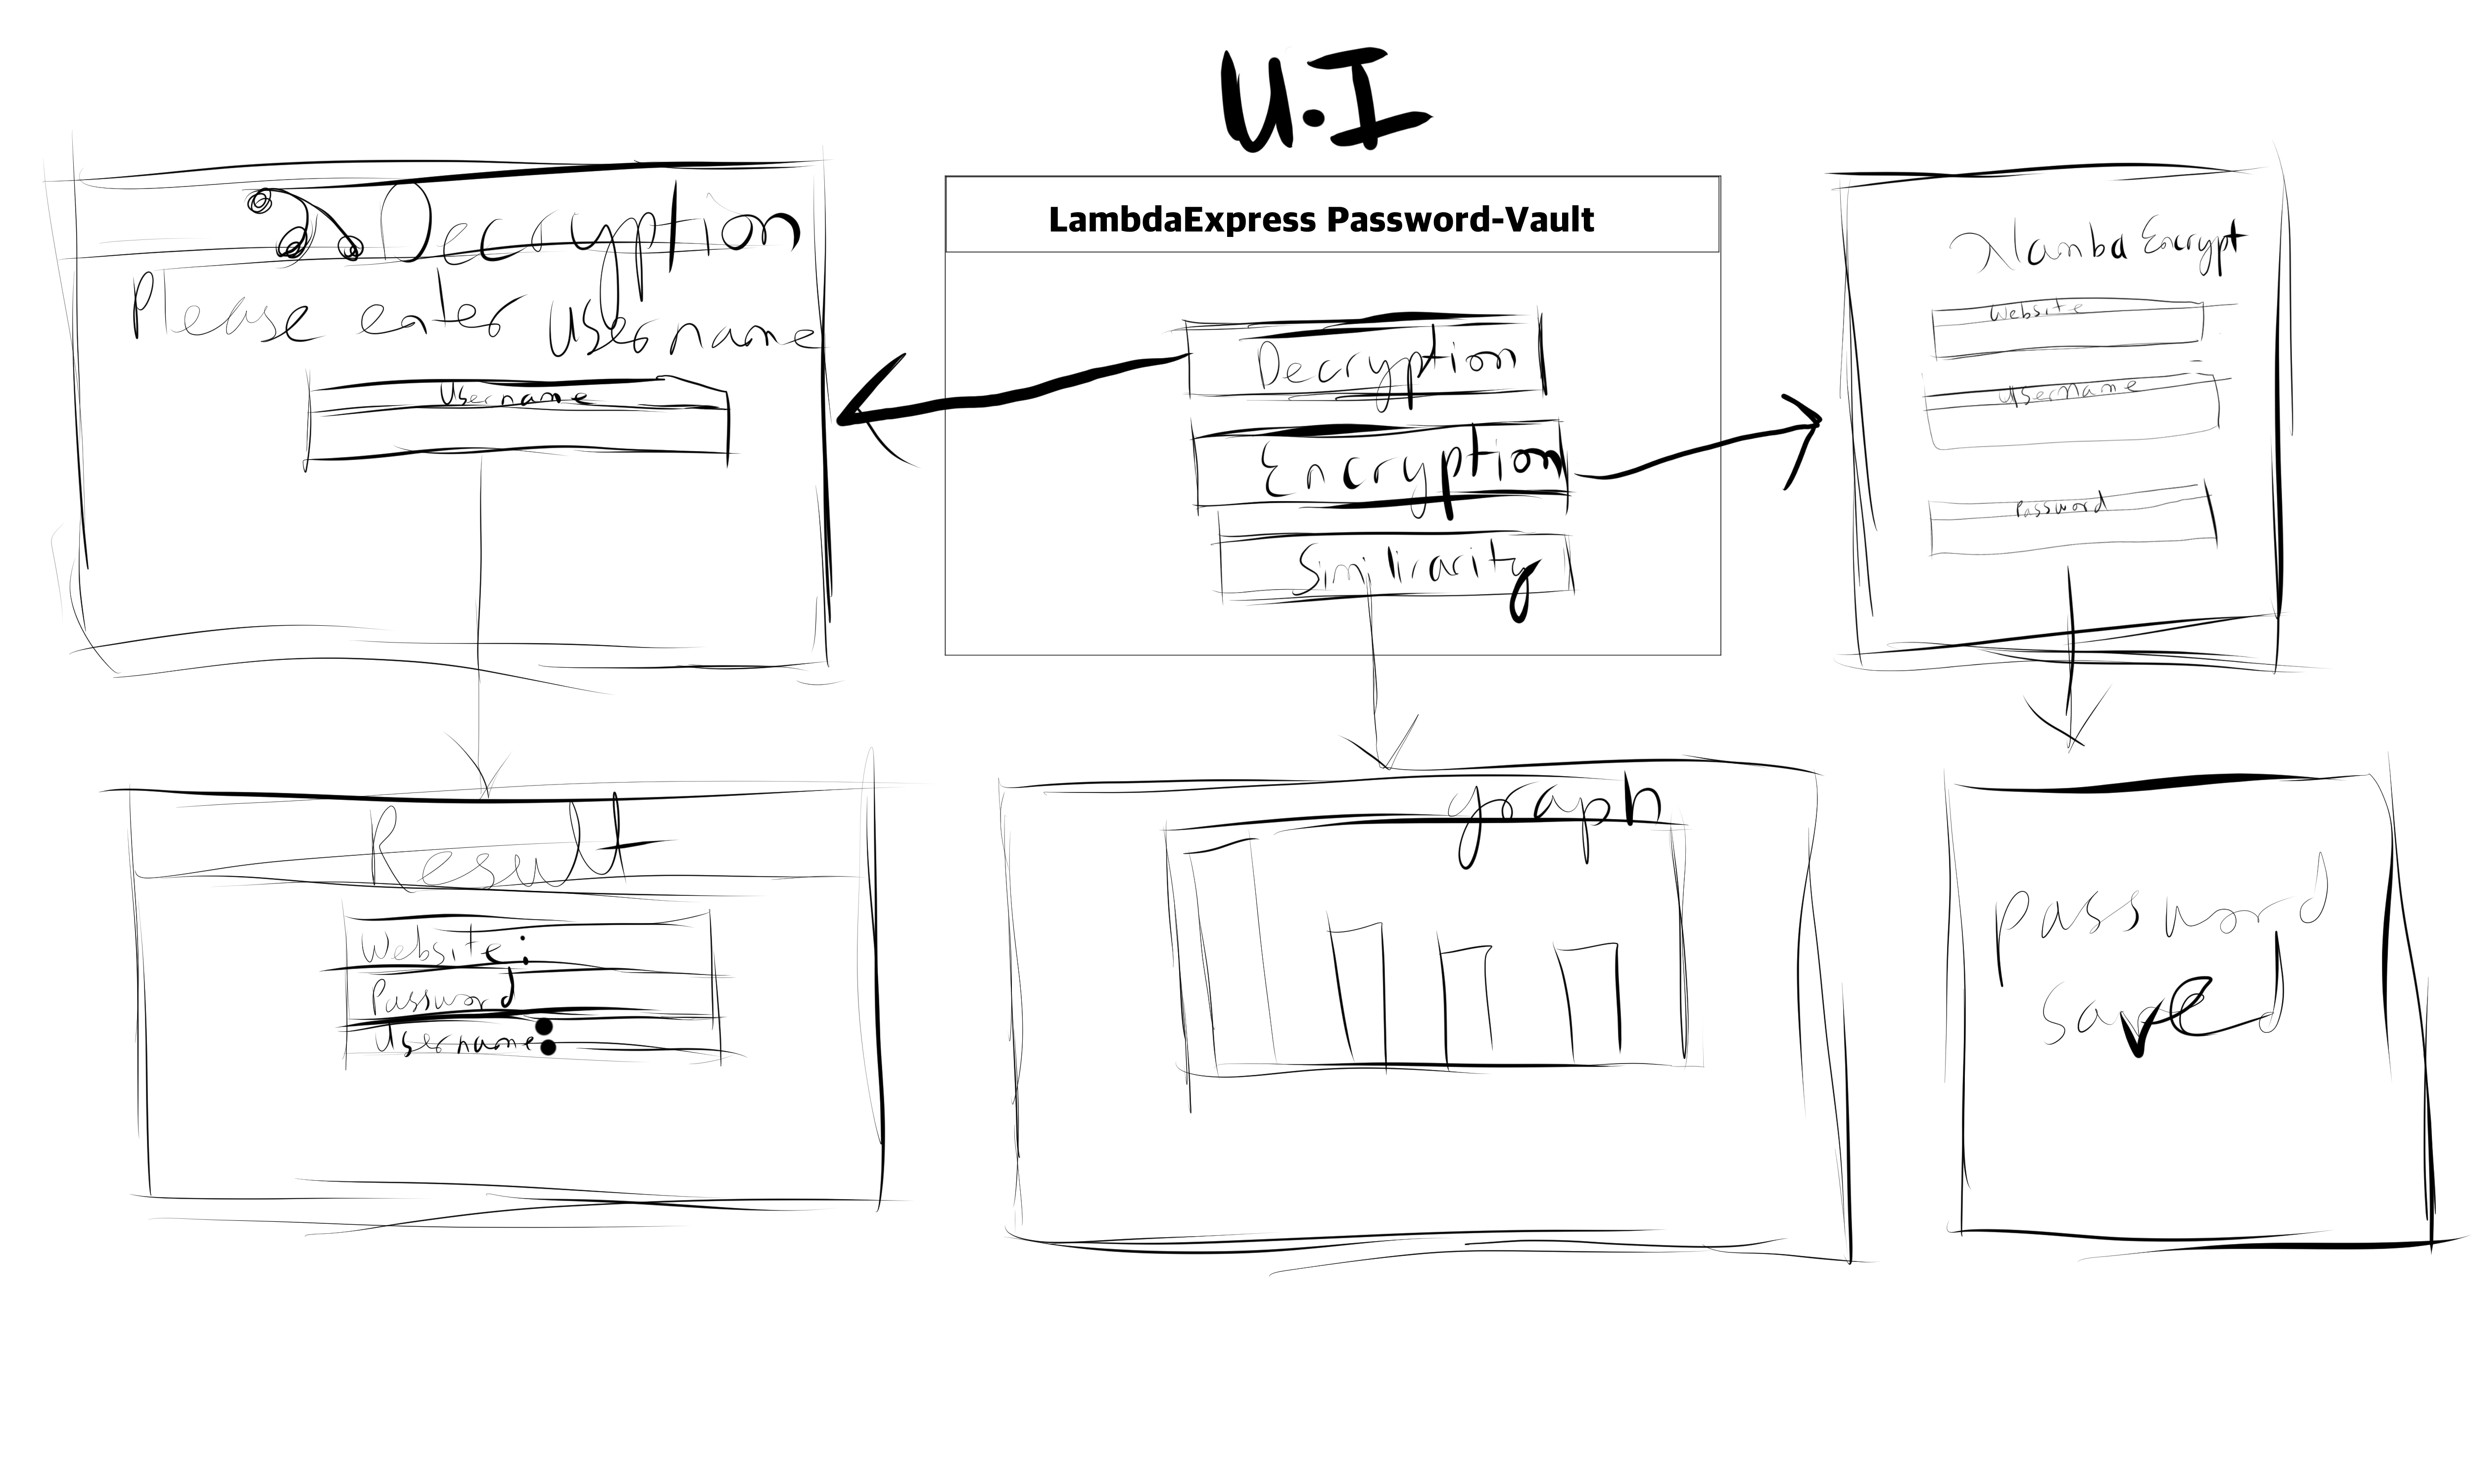 U.I
λ Decryption
Please enter Username
Username
LambdaExpress Password-Vault
Decryption
Encryption
Similiracity
λlamba Encrypt
Website
Username
Password
Result
Website:
Password
Username:
graph
password
saved